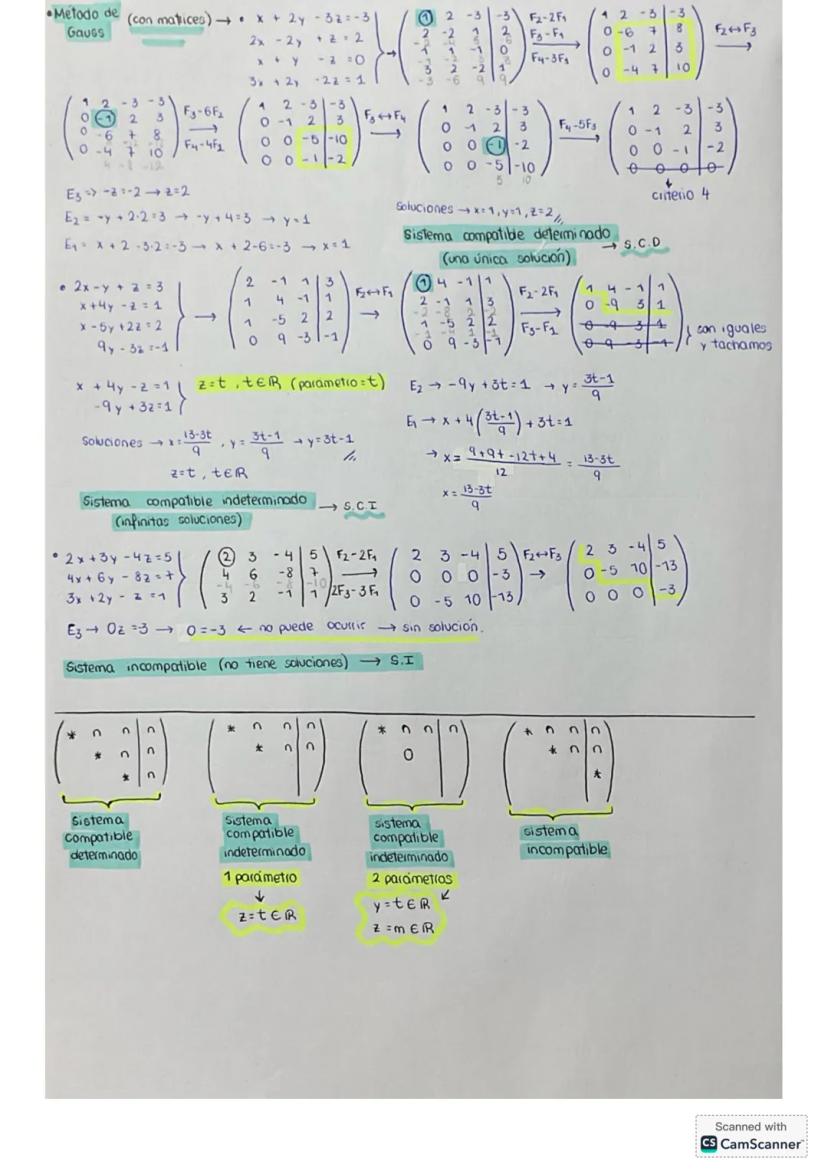 •Metodo de Gauss (con matrices) → • x + 2y - 3z = -3
2x - 2y + z = 2
x + y - z = 0
3x + 2y - 2z = 1
1 2 -3 | -3
2 -2 1 | 2
1 1 -1 | 0
3 2 -2 | 1
F2-2F1
F3-F1
F4-3F1
1 2 -3 | -3
0 -6 7 | 8
0 -1 2 | 3
0 -4 7 | 10
F2↔F3
1 2 -3 -3
0 -1 2 3
0 -6 7 8
0 -4 7 10
F3-6F2
F4-4F2
1 2 -3 | -3
0 -1 2 | 3
0 0 -5 | -10
0 0 -1 | -2
F3↔F4
1 2 -3 | -3
0 -1 2 | 3
0 0 -1 | -2
0 0 -5 | -10
5 10
F4-5F3
1 2 -3 | -3
0 -1 2 | 3
0 0 -1 | -2
0 0 0 | 0
criterio 4
E3 => -z = -2 → z = 2
E2 = -y + 2·2 = 3 → -y + 4 = 3 → y = 1
E1 = x + 2 - 3·2 = -3 → x + 2 - 6 = -3 → x = 1
Soluciones → x = 1, y = 1, z = 2
Sistema compatible determinado → S.C.D
(una única solución)
• 2x - y + z = 3
x + 4y - z = 1
x - 5y + 2z = 2
9y - 3z = -1
2 -1 1 | 3
1 4 -1 | 1
1 -5 2 | 2
0 9 -3 | -1
F2↔F1
1 4 -1 | 1
2 -1 1 | 3
1 -5 2 | 2
0 9 -3 | -1
F2-2F1
F3-F1
1 4 -1 | 1
0 -9 3 | 1
0 -9 3 | 1
0 9 -3 | -1
son iguales
y tachamos
x + 4y - z = 1
-9y + 3z = 1
z = t, t∈ℝ (parámetro = t)
E2 → -9y + 3t = 1 → y = 3t-1/9
E1 → x + 4(3t-1/9) + 3t = 1
→ x = 9+9t-12t+4/12 = 13-3t/9
x = 13-3t/9
Soluciones → x = 13-3t/9, y = 3t-1/9 → y = 3t-1
z = t, t∈ℝ
Sistema compatible indeterminado → S.C.I
(infinitas soluciones)
• 2x + 3y - 4z = 5
4x + 6y - 8z = 7
3x + 2y - z = 1
2 3 -4 | 5
4 6 -8 | 7
-4 -6 8 | -10
3 2 -1 | 1
F2-2F1
2F3-3F1
2 3 -4 | 5
0 0 0 | -3
0 -5 10 | -13
F2↔F3
2 3 -4 | 5
0 -5 10 | -13
0 0 0 | -3
E3 → 0z = -3 → 0 = -3 ← no puede ocurrir → sin solución.
Sistema incompatible (no tiene soluciones) → S.I
* n n | n
* n | n
* | n
Sistema
compatible
determinado
* n n | n
* n | n
Sistema
compatible
indeterminado
1 parámetro
z = t ∈ ℝ
* n n | n
0
sistema
compatible
indeterminado
2 parámetros
y = t ∈ ℝ
z = m ∈ ℝ
* n n | n
* n | n
*
sistema
incompatible
Scanned with
CS CamScanner